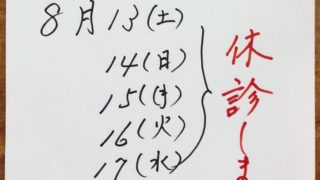 8月13(土)
14(日)
15(月)
16(火)
17(水)
休診しま